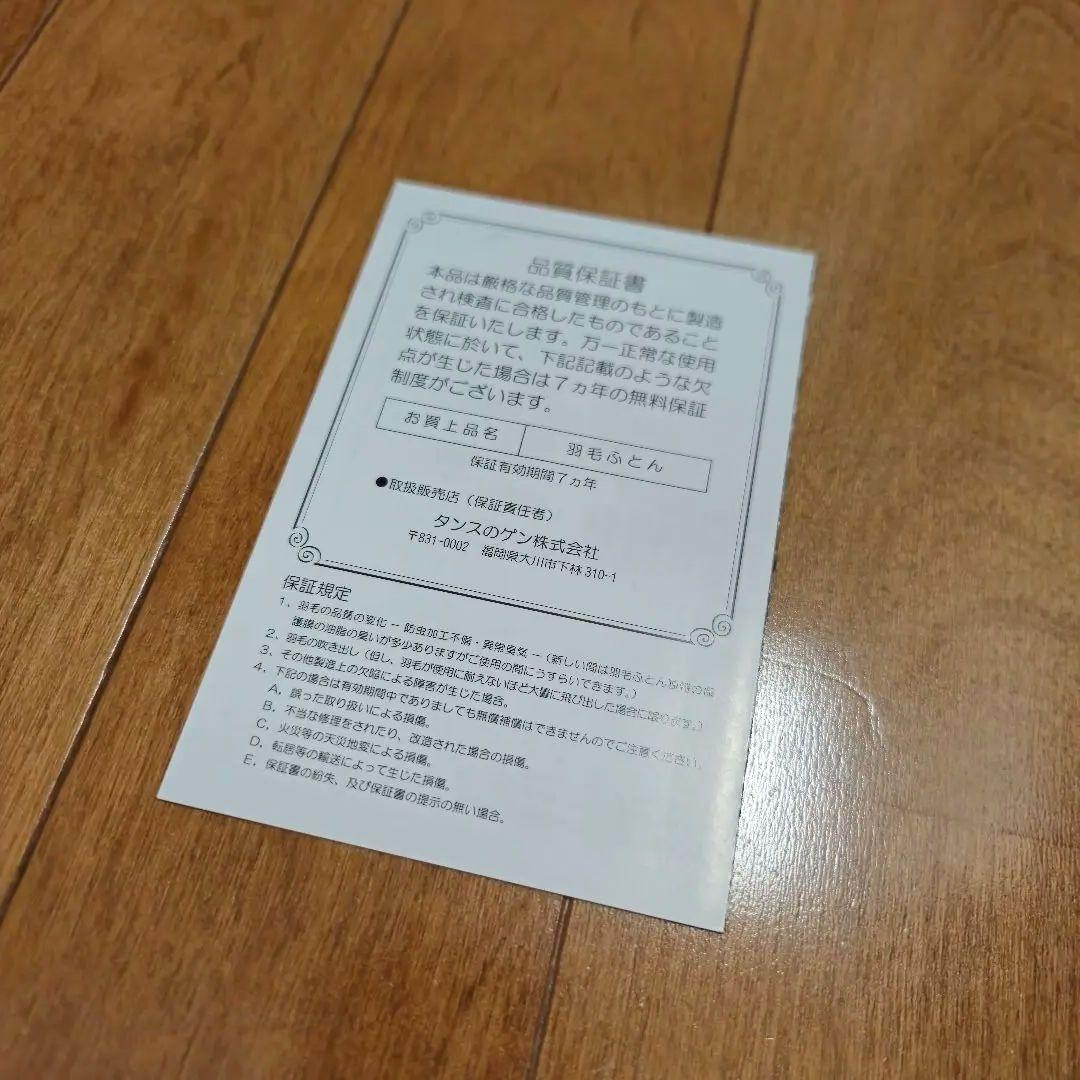 品質保証書
本品は厳格な品質管理のもとに製造
され検査に合格したものであること
を保証いたします。万一正常な使用
状態に於いて、下記記載のような欠
点が生じた場合は７ヵ年の無料保証
制度がございます。
お買上品名 羽毛ふとん
保証有効期間７ヵ年
●取扱販売店（保証責任者）
タンスのゲン株式会社
〒831-0002 福岡県大川市下林310-1
保証規定
1、羽毛の品質の変化 — 防虫加工不備・異常臭気 —（新しい間は羽毛ふとん独特の
護膜の油脂の臭いが多少ありますがご使用の間にうすらいできます。）
2、羽毛の吹き出し（但し、羽毛が使用に耐えないほど大量に飛び出した場合に限ります。）
3、その他製造上の欠陥による障害が生じた場合。
4、下記の場合は有効期間中でありましても無償補償はできませんのでご注意ください。
A、誤った取り扱いによる損傷。
B、不当な修理をされたり、改造された場合の損傷。
C、火災等の天災地変による損傷。
D、転居等の輸送によって生じた損傷。
E、保証書の紛失、及び保証書の提示の無い場合。